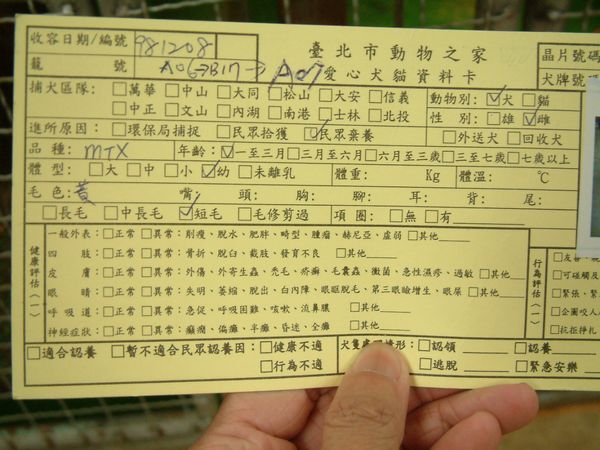 收容日期/編號 981208
臺北市動物之家
晶片號碼
籠號 A06→B17→A07
愛心犬貓資料卡
犬牌號碼
捕犬區隊: □萬華 □中山 □大同 □松山 □大安 □信義
動物別: ☑犬 □貓
□中正 □文山 □內湖 □南港 □士林 □北投
性別: □雄 ☑雌
進所原因: □環保局捕捉 □民眾拾獲 ☑民眾棄養 □外送犬 □回收犬
品種: MIX 年齡: ☑一至三月 □三月至六月 □六月至三歲 □三至七歲 □七歲以上
體型: □大 □中 □小 ☑幼 □未離乳 體重: Kg 體溫: ℃
毛色: 黃 嘴: 頭: 胸: 腳: 耳: 背: 尾:
□長毛 □中長毛 ☑短毛 □毛修剪過 項圈: □無 □有
健康評估(一)
一般外表: □正常 □異常: 削瘦、脫水、肥胖、畸型、腫瘤、赫尼亞、虛弱 □其他
四肢: □正常 □異常: 骨折、脫臼、截肢、發育不良 □其他
皮膚: □正常 □異常: 外傷、外寄生蟲、禿毛、疥癬、毛囊蟲、黴菌、急性濕疹、過敏 □其他
眼睛: □正常 □異常: 失明、萎縮、脫出、白內障、眼眶脫毛、第三眼瞼增生、眼屎 □其他
呼吸道: □正常 □異常: 急促、呼吸困難、咳嗽、流鼻膿 □其他
神經症狀: □正常 □異常: 癲癇、偏癱、半癱、昏迷、全癱 □其他
行為評估(一)
□友善
□可碰觸
□緊張、緊
□企圖咬人
□抗拒掙扎
□適合認養 □暫不適合民眾認養因: □健康不適
□行為不適
犬隻處 情形: □認領 □認養
□逃脫 □緊急安樂